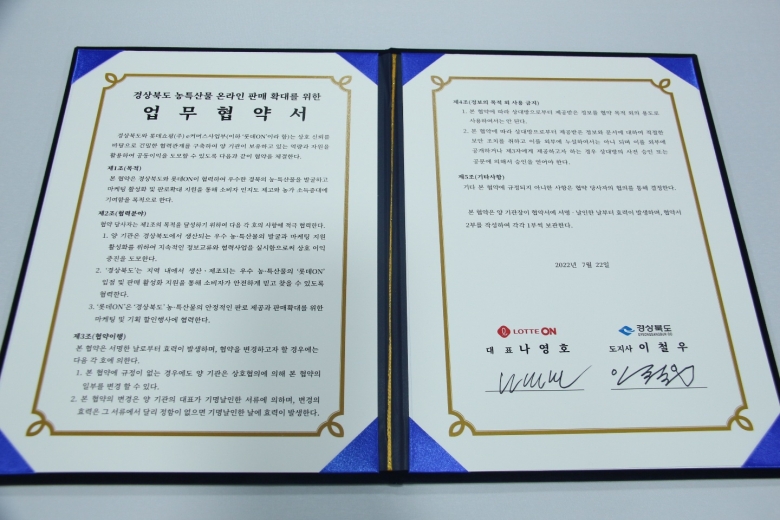 경상북도 농특산물 온라인 판매 확대를 위한
업 무 협 약 서
경상북도와 롯데쇼핑(주) e커머스사업부(이하 '롯데ON'이라 함)는 상호 신뢰를
바탕으로 긴밀한 협력관계를 구축하여 양 기관이 보유하고 있는 역량과 자원을
활용하여 공동이익을 도모할 수 있도록 다음과 같이 협약을 체결한다.
제1조(목적)
본 협약은 경상북도와 롯데ON이 협력하여 우수한 경북의 농·특산물을 발굴하고
마케팅 활성화 및 판로확대 지원을 통해 소비자 인지도 제고와 농가 소득증대에
기여함을 목적으로 한다.
제2조(협력분야)
협약 당사자는 제1조의 목적을 달성하기 위하여 다음 각 호의 사항에 적극 협력한다.
1. 양 기관은 경상북도에서 생산되는 우수 농·특산물의 발굴과 마케팅 지원
활성화를 위하여 지속적인 정보교류와 협력사업을 실시함으로써 상호 이익
증진을 도모한다.
2. '경상북도'는 지역 내에서 생산·제조되는 우수 농·특산물의 '롯데ON'
입점 및 판매 활성화 지원을 통해 소비자가 안전하게 믿고 찾을 수 있도록
협력한다.
3. '롯데ON'은 '경상북도' 농·특산물의 안정적인 판로 제공과 판매확대를 위한
마케팅 및 기획 할인행사에 협력한다.
제3조(협약이행)
본 협약은 서명한 날로부터 효력이 발생하며, 협약을 변경하고자 할 경우에는
다음 각 호에 의한다.
1. 본 협약에 규정이 없는 경우에도 양 기관은 상호협의에 의해 본 협약의
일부를 변경 할 수 있다.
2. 본 협약의 변경은 양 기관의 대표가 기명날인한 서류에 의하며, 변경의
효력은 그 서류에서 달리 정함이 없으면 기명날인한 날에 효력이 발생한다.
제4조(정보의 목적 외 사용 금지)
1. 본 협약에 따라 상대방으로부터 제공받은 정보를 협약 목적 외의 용도로
사용하여서는 안 된다.
2. 본 협약에 따라 상대방으로부터 제공받은 정보와 문서에 대하여 적절한
보안 조치를 취하고 이를 외부에 누설하여서는 아니 되며 이를 외부에
공개하거나 제3자에게 제공하고자 하는 경우 상대방의 사전 승인 또는
공문에 의해서 승인을 얻어야 한다.
제5조(기타사항)
기타 본 협약에 규정되지 아니한 사항은 협약 당사자의 협의를 통해 결정한다.
본 협약은 양 기관장이 협약서에 서명·날인한 날부터 효력이 발생하며, 협약서
2부를 작성하여 각각 1부씩 보관한다.
2022년 7월 22일
LOTTE ON
대 표 나 영 호
경상북도
GYEONGSANGBUK-DO
도지사 이 철 우